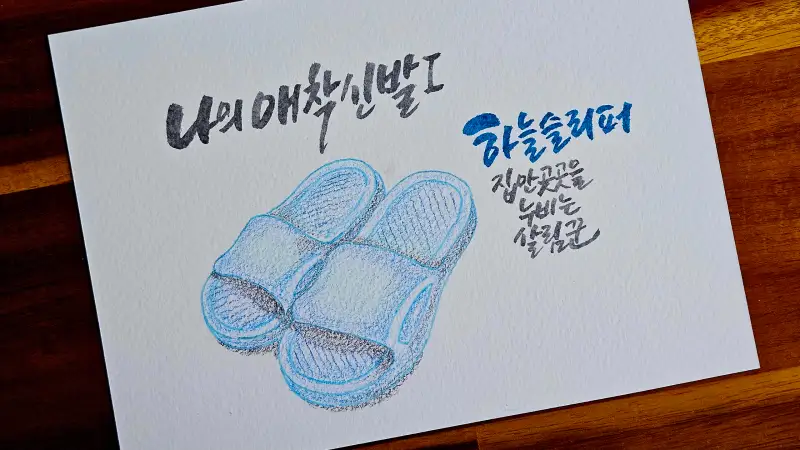 나의 애착신발 I
하늘슬리퍼
집안곳곳을
누비는
살림꾼